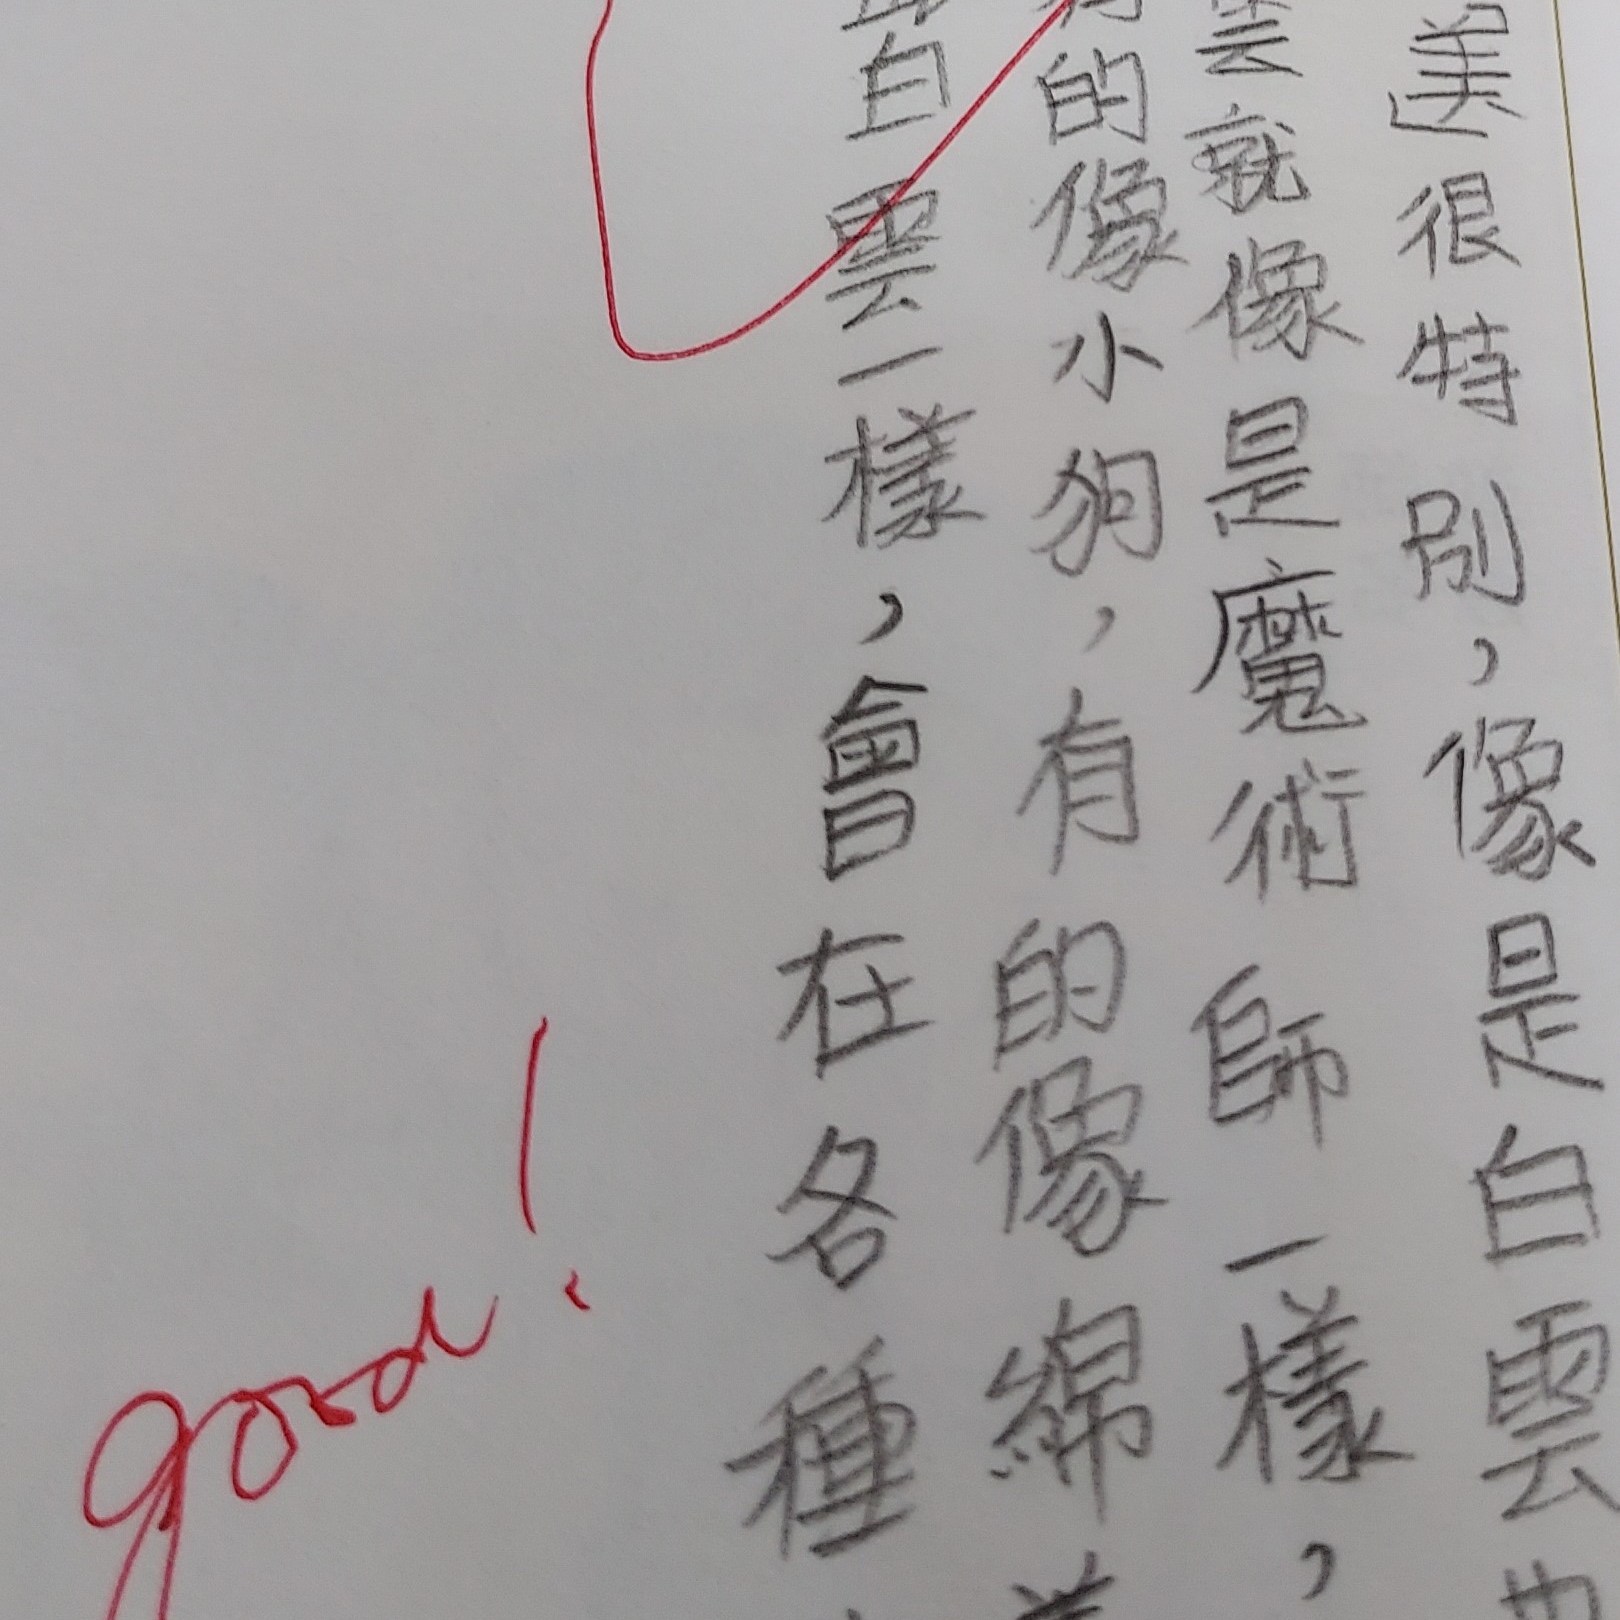 送很特別，像是白雲
雲就像是魔術師一樣，
的像小狗，有的像綿
白雲一樣，會在各種
good!